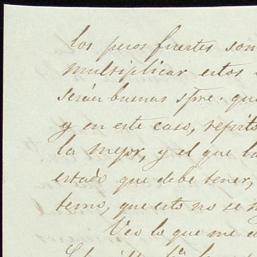 los peros fuertes son
multiplicar estos
serán buenas spre. que
y en este caso, repito
la mejor, y el que
estado que debe tener,
temo, que esto no se
Veo lo que me